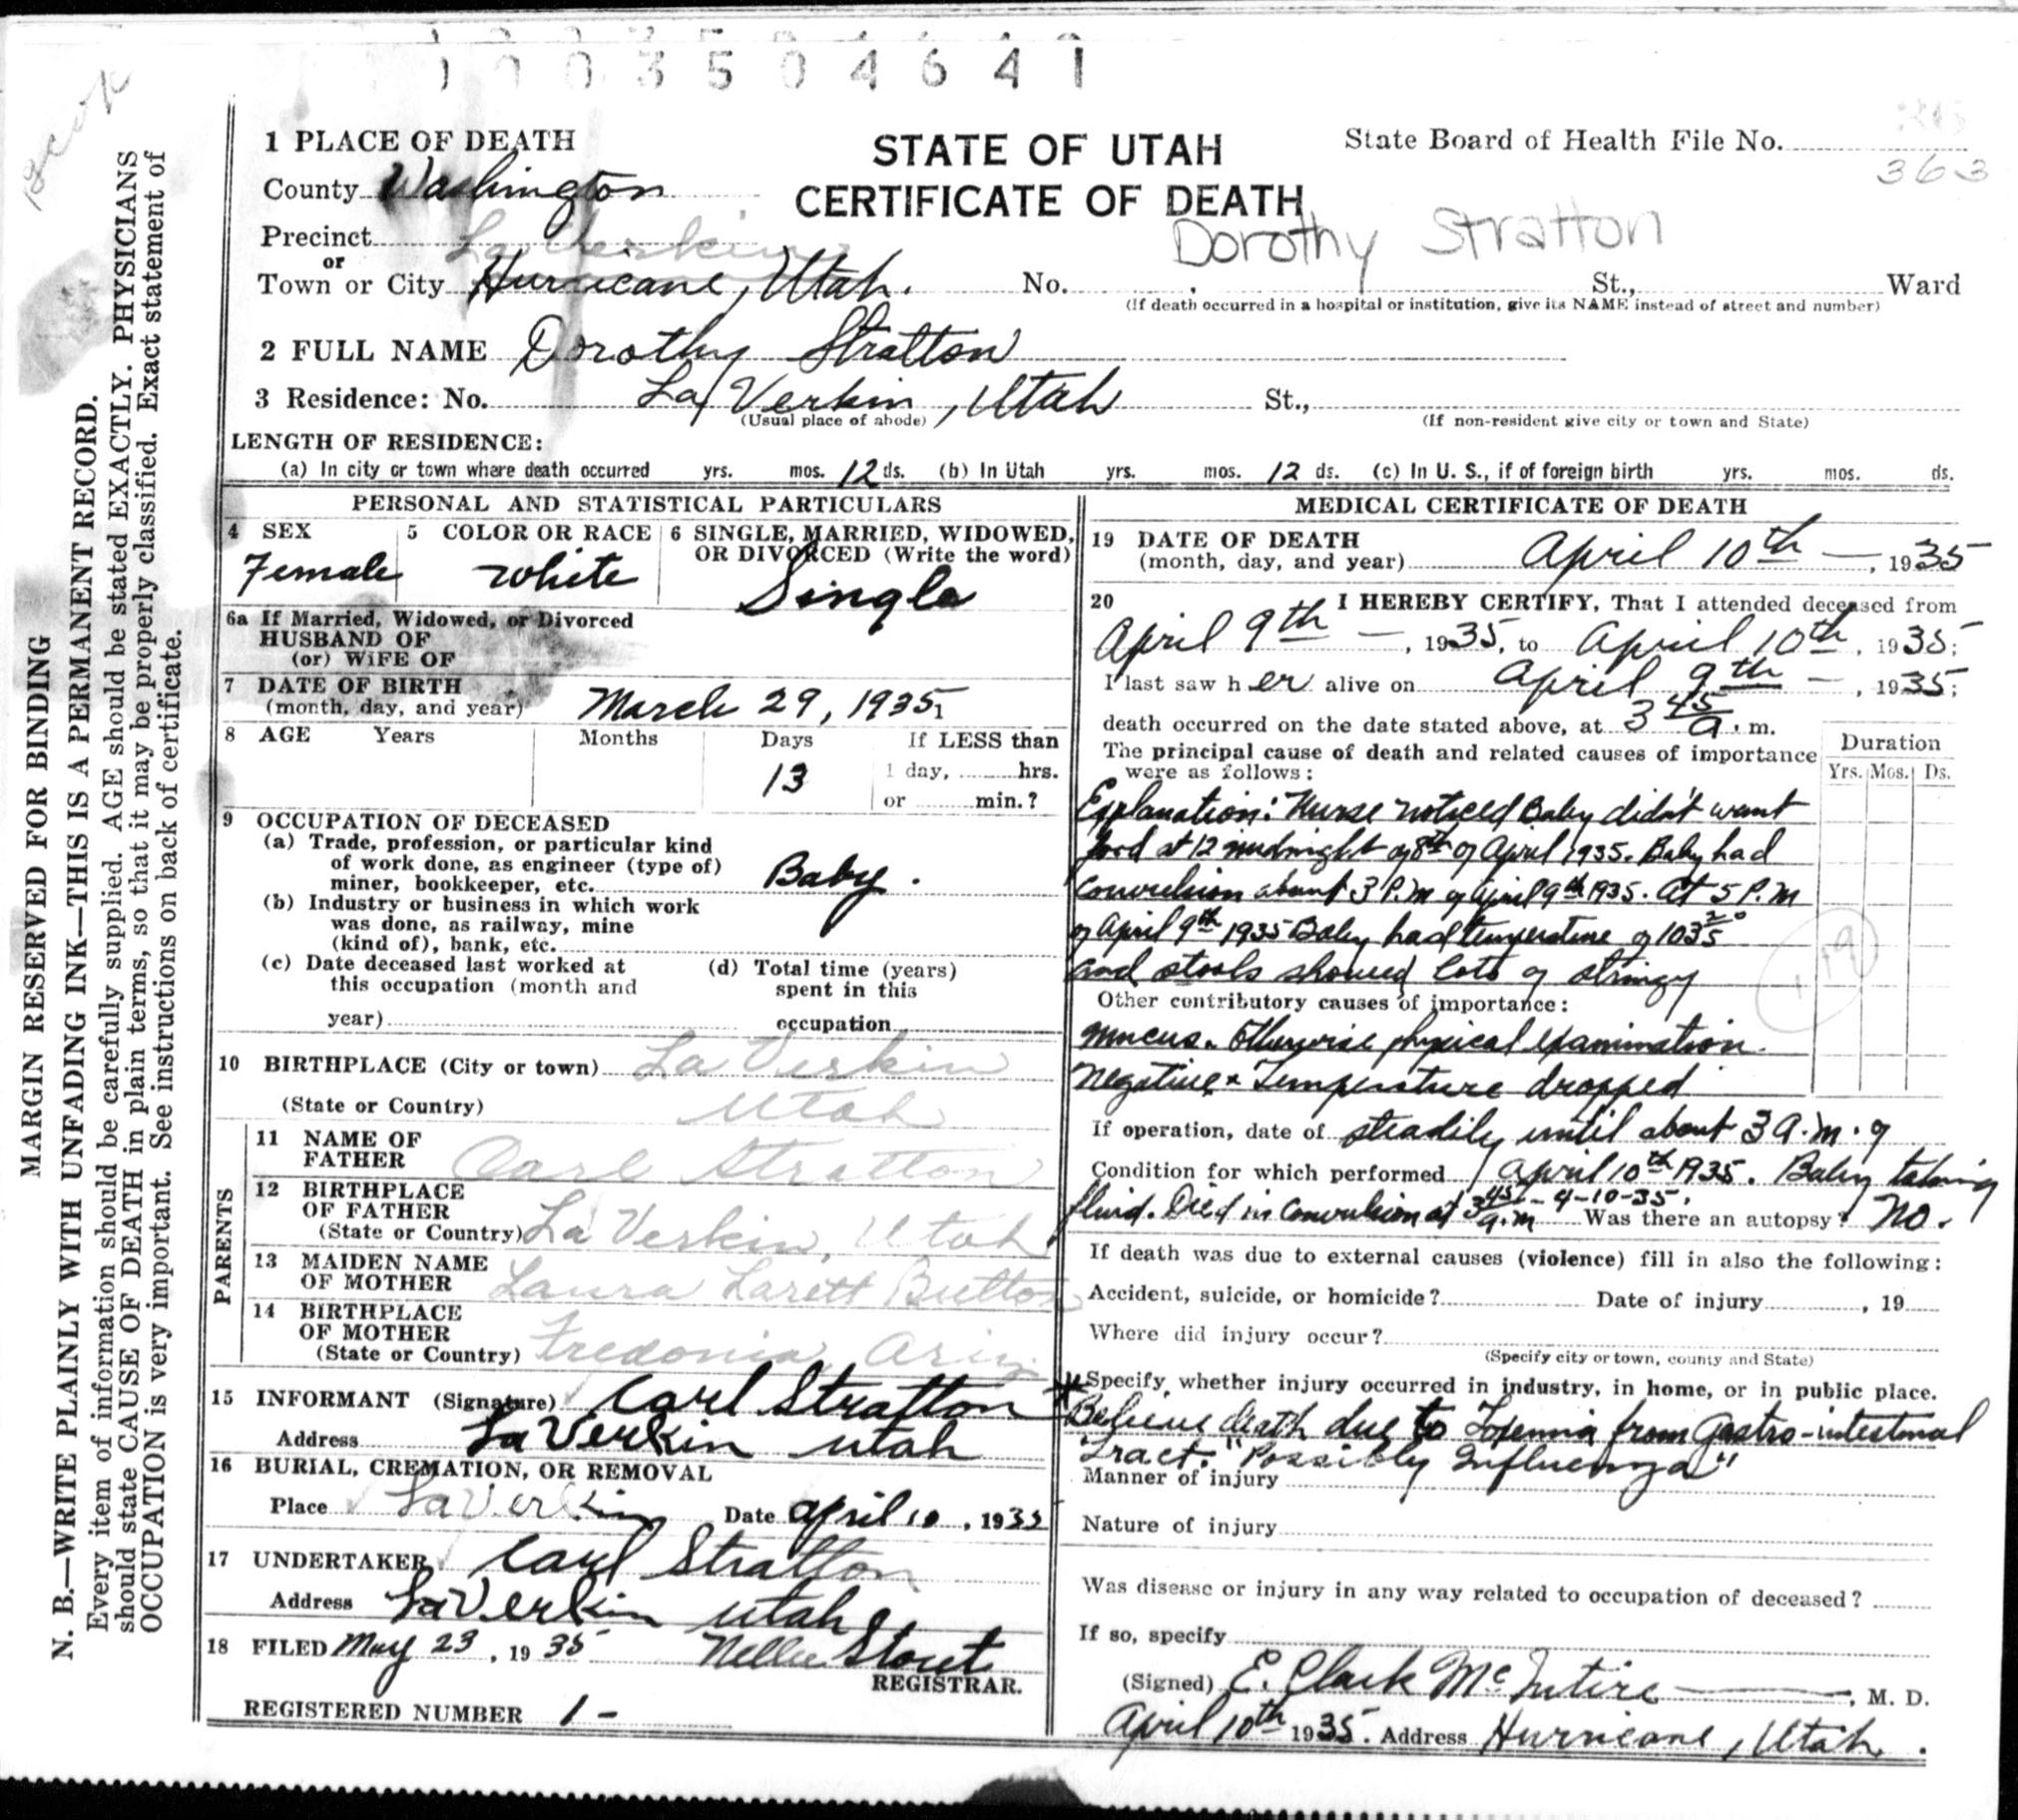 1003504641
1 PLACE OF DEATH
STATE OF UTAH
CERTIFICATE OF DEATH
State Board of Health File No.
363
County Washington
Precinct La Verkin
or
Town or City Hurricane, Utah.
Dorothy Stratton
No. St., Ward
(If death occurred in a hospital or institution, give its NAME instead of street and number)
2 FULL NAME Dorothy Stratton
3 Residence: No. La Verkin, Utah St.,
(Usual place of abode)
(If non-resident give city or town and State)
LENGTH OF RESIDENCE:
(a) In city or town where death occurred yrs. mos. 12 ds. (b) In Utah yrs. mos. 12 ds. (c) In U. S., if of foreign birth yrs. mos. ds.
PERSONAL AND STATISTICAL PARTICULARS
4 SEX
Female
5 COLOR OR RACE
White
6 SINGLE, MARRIED, WIDOWED,
OR DIVORCED (Write the word)
Single
6a If Married, Widowed, or Divorced
HUSBAND OF
(or) WIFE OF
7 DATE OF BIRTH
(month, day, and year) March 29, 1935
8 AGE Years Months Days If LESS than
13 1 day, hrs.
or min.?
9 OCCUPATION OF DECEASED
(a) Trade, profession, or particular kind
of work done, as engineer (type of)
miner, bookkeeper, etc. Baby.
(b) Industry or business in which work
was done, as railway, mine
(kind of), bank, etc.
(c) Date deceased last worked at
this occupation (month and
year)
(d) Total time (years)
spent in this
occupation
10 BIRTHPLACE (City or town) La Verkin
(State or Country) Utah
PARENTS
11 NAME OF
FATHER Carl Stratton
12 BIRTHPLACE
OF FATHER
(State or Country) La Verkin, Utah
13 MAIDEN NAME
OF MOTHER Laura Larett Button
14 BIRTHPLACE
OF MOTHER
(State or Country) Fredonia, Ariz
15 INFORMANT (Signature) Carl Stratton
Address La Verkin Utah
16 BURIAL, CREMATION, OR REMOVAL
Place LaVerkin Date april 10, 1935
17 UNDERTAKER Carl Stratton
Address LaVerkin Utah
18 FILED May 23, 1935 Nellie Stout
REGISTRAR.
REGISTERED NUMBER 1-
MEDICAL CERTIFICATE OF DEATH
19 DATE OF DEATH
(month, day, and year) April 10th, 1935
20 I HEREBY CERTIFY, That I attended deceased from
April 9th, 1935, to April 10th, 1935;
I last saw her alive on April 9th, 1935;
death occurred on the date stated above, at 3 45/a. m.
The principal cause of death and related causes of importance
were as follows:
Duration
Yrs. Mos. Ds.
Explanation: Nurse noticed Baby didn't want
food at 12 midnight of 8th of April 1935. Baby had
Convulsion about 3 P.M of April 9th 1935. At 5 P.M
of April 9th 1935 Baby had temperature of 103 2/5°
and stools showed lots of stringy
119
Other contributory causes of importance:
mucus. Otherwise physical examination
negative. Temperature dropped
If operation, date of steadily until about 3 A.M. of
Condition for which performed April 10th 1935. Baby taking
fluid. Died in Convulsion at 3 45 a.m - 4-10-35. Was there an autopsy? No.
If death was due to external causes (violence) fill in also the following:
Accident, suicide, or homicide? Date of injury , 19
Where did injury occur?
(Specify city or town, county and State)
Specify whether injury occurred in industry, in home, or in public place.
* Believe death due to Toxemia from Gastro-intestinal
Tract. "Possibly Influenza"
Manner of injury
Nature of injury
Was disease or injury in any way related to occupation of deceased?
If so, specify
(Signed) E. Clark McIntire, M. D.
April 10th 1935. Address Hurricane, Utah.
MARGIN RESERVED FOR BINDING
N. B.—WRITE PLAINLY WITH UNFADING INK—THIS IS A PERMANENT RECORD.
Every item of information should be carefully supplied. AGE should be stated EXACTLY. PHYSICIANS
should state CAUSE OF DEATH in plain terms, so that it may be properly classified. Exact statement of
OCCUPATION is very important. See instructions on back of certificate.